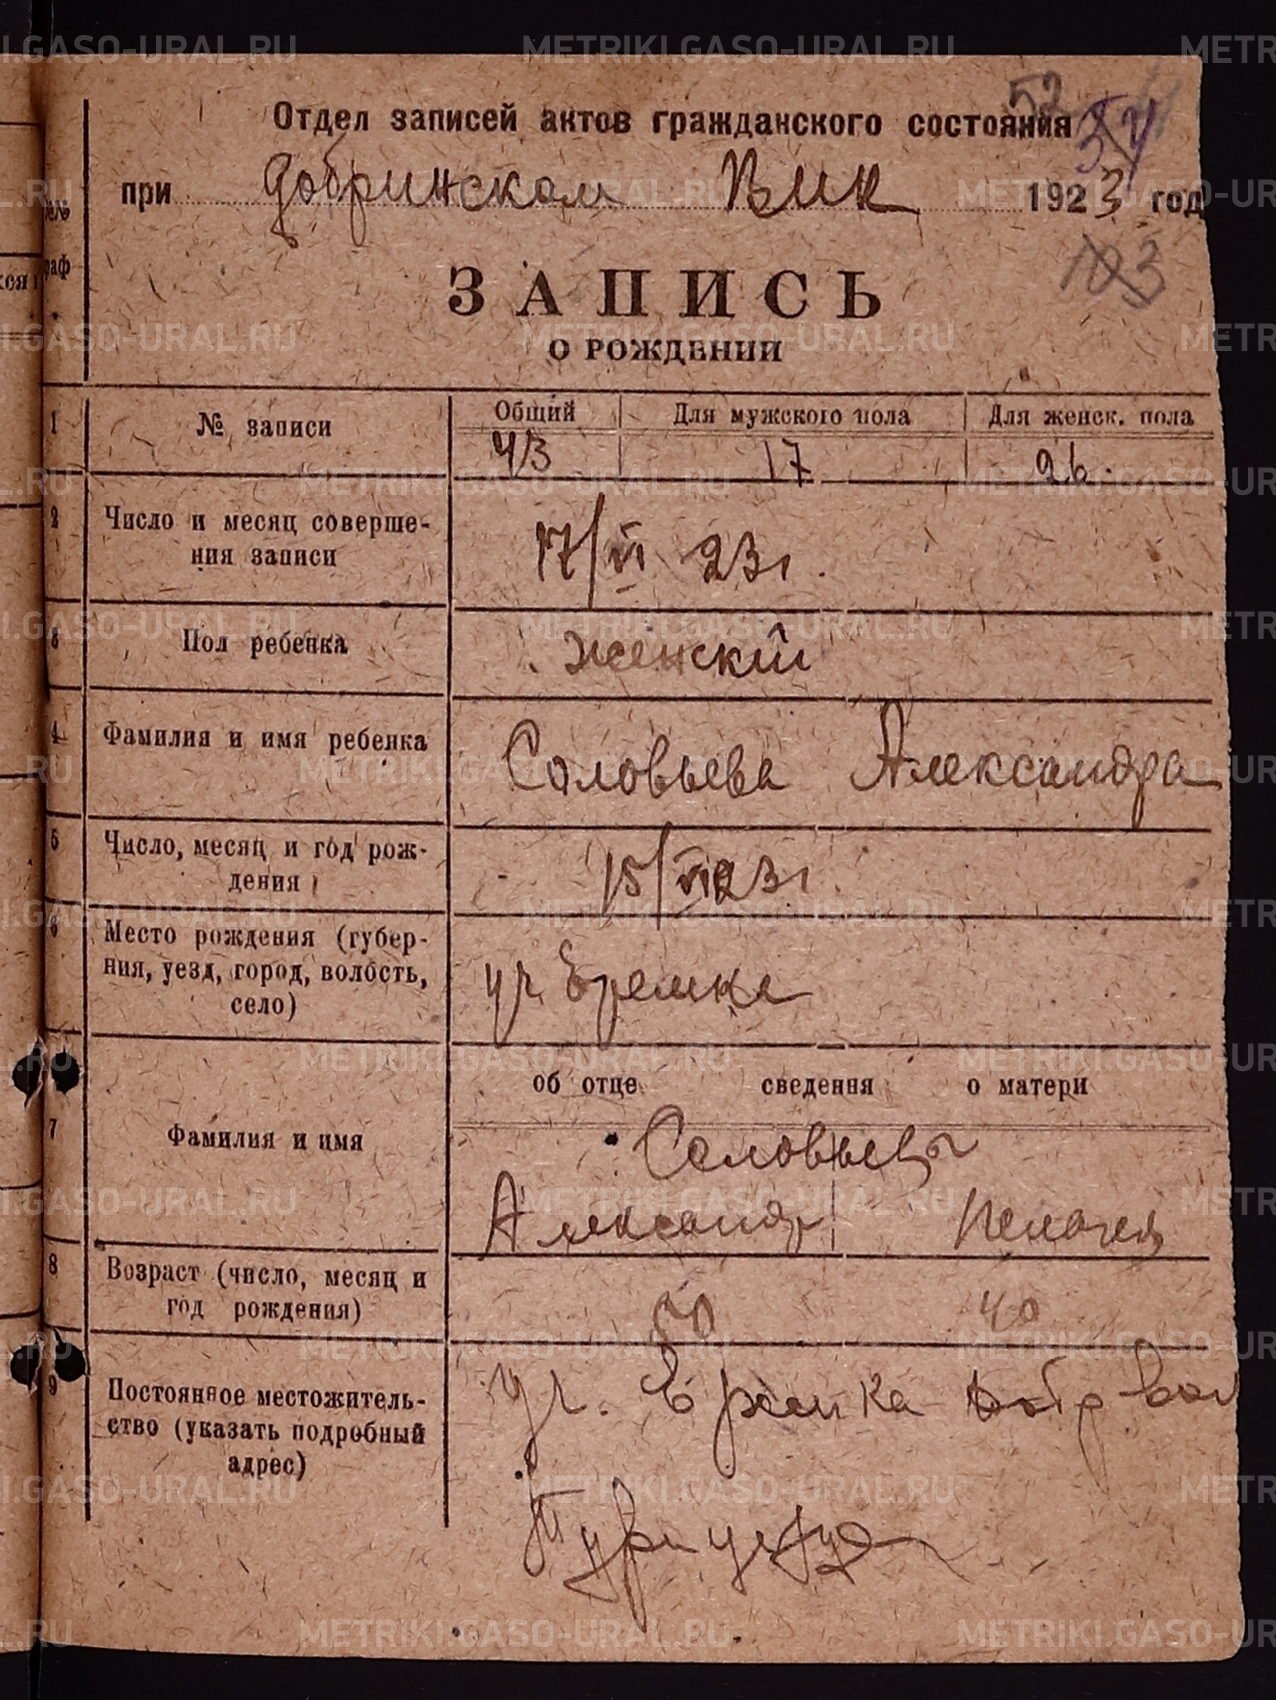 52
Отдел записей актов гражданского состояния
при Добринском Вик 1923 год
103
ЗАПИСЬ
О РОЖДЕНИИ
1 № записи Общий Для мужского пола Для женск. пола
43 17 26.
2 Число и месяц соверше-
ния записи
17/VI 23 г.
3 Пол ребенка Женский
4 Фамилия и имя ребенка Соловьева Александра
5 Число, месяц и год рож-
дения
15/VI 23 г.
6 Место рождения (губер-
ния, уезд, город, волость,
село)
уч. Еремка
об отце сведения о матери
7 Фамилия и имя
Соловьевы
Александр Пелагея
8 Возраст (число, месяц и
год рождения)
50 40
9 Постоянное местожитель-
ство (указать подробный
адрес)
уч. Еремка Добр Вол
METRIKI.GASO-URAL.RU